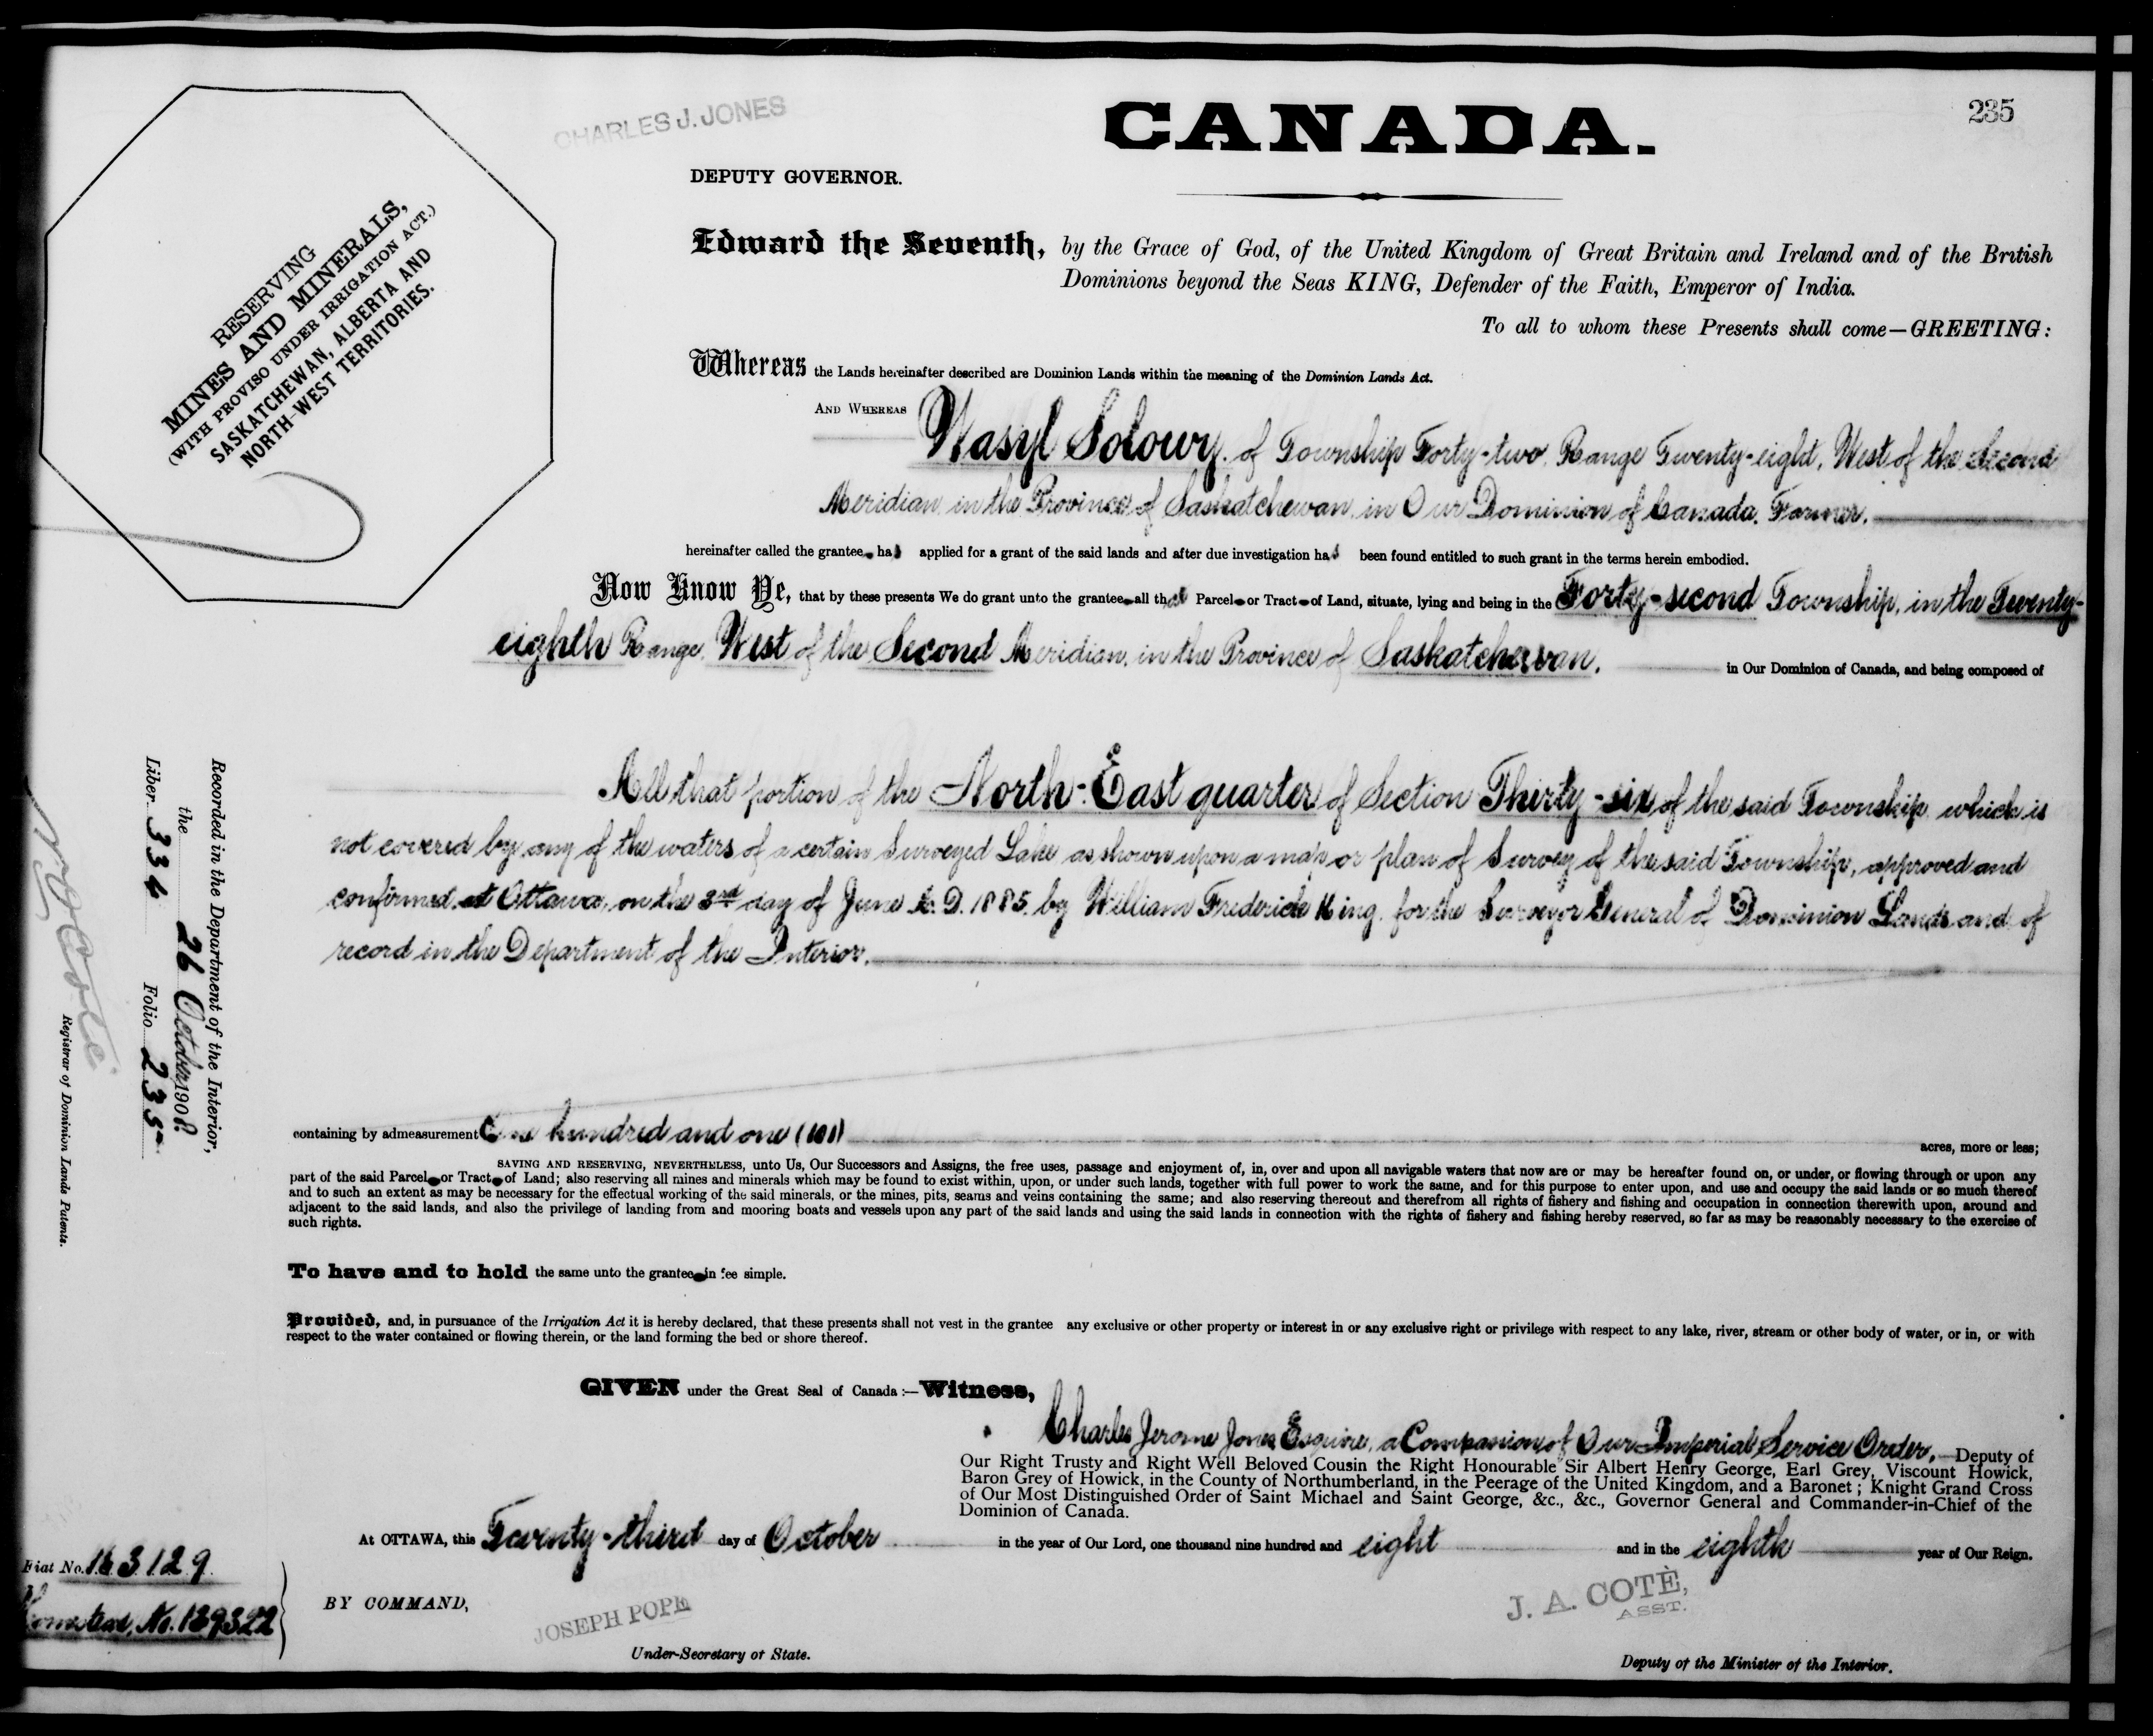 235
CHARLES J. JONES
CANADA.
DEPUTY GOVERNOR.
RESERVING
MINES AND MINERALS,
(WITH PROVISO UNDER IRRIGATION ACT.)
SASKATCHEWAN, ALBERTA AND
NORTH-WEST TERRITORIES.
Edward the Seventh, by the Grace of God, of the United Kingdom of Great Britain and Ireland and of the British
Dominions beyond the Seas KING, Defender of the Faith, Emperor of India.
To all to whom these Presents shall come—GREETING:
Whereas the Lands hereinafter described are Dominion Lands within the meaning of the Dominion Lands Act.
AND WHEREAS Wasyl Solowy, of Township Forty-two, Range Twenty-eight, West of the Second
Meridian, in the Province of Saskatchewan, in Our Dominion of Canada, Farmer.
hereinafter called the grantee has applied for a grant of the said lands and after due investigation has been found entitled to such grant in the terms herein embodied.
Now Know Ye, that by these presents We do grant unto the grantee all that Parcel or Tract of Land, situate, lying and being in the Forty-second Township, in the Twenty-
eighth Range, West of the Second Meridian, in the Province of Saskatchewan, in Our Dominion of Canada, and being composed of
All that portion of the North-East quarter of Section Thirty-six of the said Township, which is
not covered by any of the waters of a certain Surveyed Lake as shown upon a map or plan of Survey of the said Township, approved and
confirmed at Ottawa, on the 3rd day of June A. D. 1885, by William Frederick King, for the Surveyor General of Dominion Lands and of
record in the Department of the Interior.
containing by admeasurement One hundred and one (101) acres, more or less;
SAVING AND RESERVING, NEVERTHELESS, unto Us, Our Successors and Assigns, the free uses, passage and enjoyment of, in, over and upon all navigable waters that now are or may be hereafter found on, or under, or flowing through or upon any
part of the said Parcel or Tract of Land; also reserving all mines and minerals which may be found to exist within, upon, or under such lands, together with full power to work the same, and for this purpose to enter upon, and use and occupy the said lands or so much thereof
and to such an extent as may be necessary for the effectual working of the said minerals, or the mines, pits, seams and veins containing the same; and also reserving thereout and therefrom all rights of fishery and fishing and occupation in connection therewith upon, around and
adjacent to the said lands, and also the privilege of landing from and mooring boats and vessels upon any part of the said lands and using the said lands in connection with the rights of fishery and fishing hereby reserved, so far as may be reasonably necessary to the exercise of
such rights.
To have and to hold the same unto the grantee in fee simple.
Provided, and, in pursuance of the Irrigation Act it is hereby declared, that these presents shall not vest in the grantee any exclusive or other property or interest in or any exclusive right or privilege with respect to any lake, river, stream or other body of water, or in, or with
respect to the water contained or flowing therein, or the land forming the bed or shore thereof.
GIVEN under the Great Seal of Canada:—Witness,
Charles Jerome Jones Esquire, a Companion of Our Imperial Service Order, Deputy of
Our Right Trusty and Right Well Beloved Cousin the Right Honourable Sir Albert Henry George, Earl Grey, Viscount Howick,
Baron Grey of Howick, in the County of Northumberland, in the Peerage of the United Kingdom, and a Baronet; Knight Grand Cross
of Our Most Distinguished Order of Saint Michael and Saint George, &c., &c., Governor General and Commander-in-Chief of the
Dominion of Canada.
At OTTAWA, this Twenty-third day of October in the year of Our Lord, one thousand nine hundred and eight and in the eighth year of Our Reign.
BY COMMAND,
JOSEPH POPE
Under-Secretary of State.
J. A. COTÈ,
ASST.
Deputy of the Minister of the Interior.
Recorded in the Department of the Interior,
the 26 October 1908
Liber 334 Folio 235
Registrar of Dominion Lands Patents.
Fiat No. 163129
Homestead, No. 139322